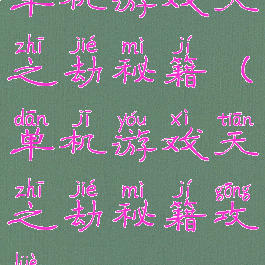 单机游戏天
zhī jié mì jí
之劫秘籍（
dān jī yóu xì tiān
单机游戏天
zhī jié mì jí gōng
之劫秘籍攻
lüè